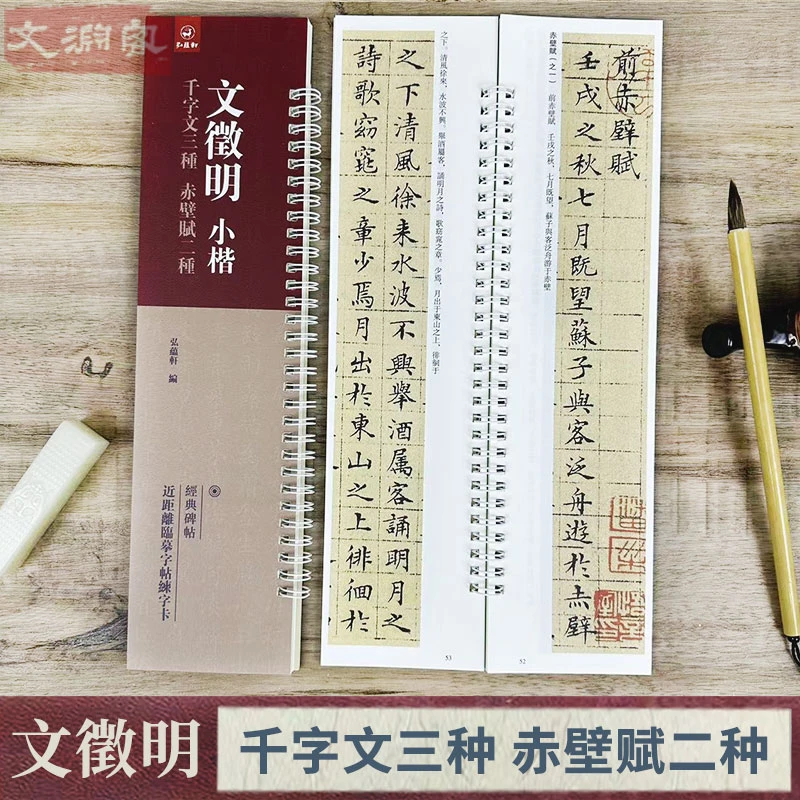 文渊阁
弘蕴軒
文徵明 小楷
千字文三種 赤壁賦二種
弘蘊軒 編
經典碑帖
近距離臨摹字帖練字卡
前赤壁賦
壬戌之秋七月既望蘇子與客泛舟遊於赤壁
赤壁賦(之一) 前赤壁賦 壬戌之秋,七月既望,蘇子與客泛舟游于赤壁
52
之下清風徐来水波不興舉酒属客誦明月之
詩歌窈窕之章少焉月出於東山之上徘徊於
之下。清風徐來,水波不興。舉酒屬客,誦明月之詩,歌窈窕之章。少焉,月出于東山之上,徘徊于
53
文徵明
千字文三种 赤壁赋二种